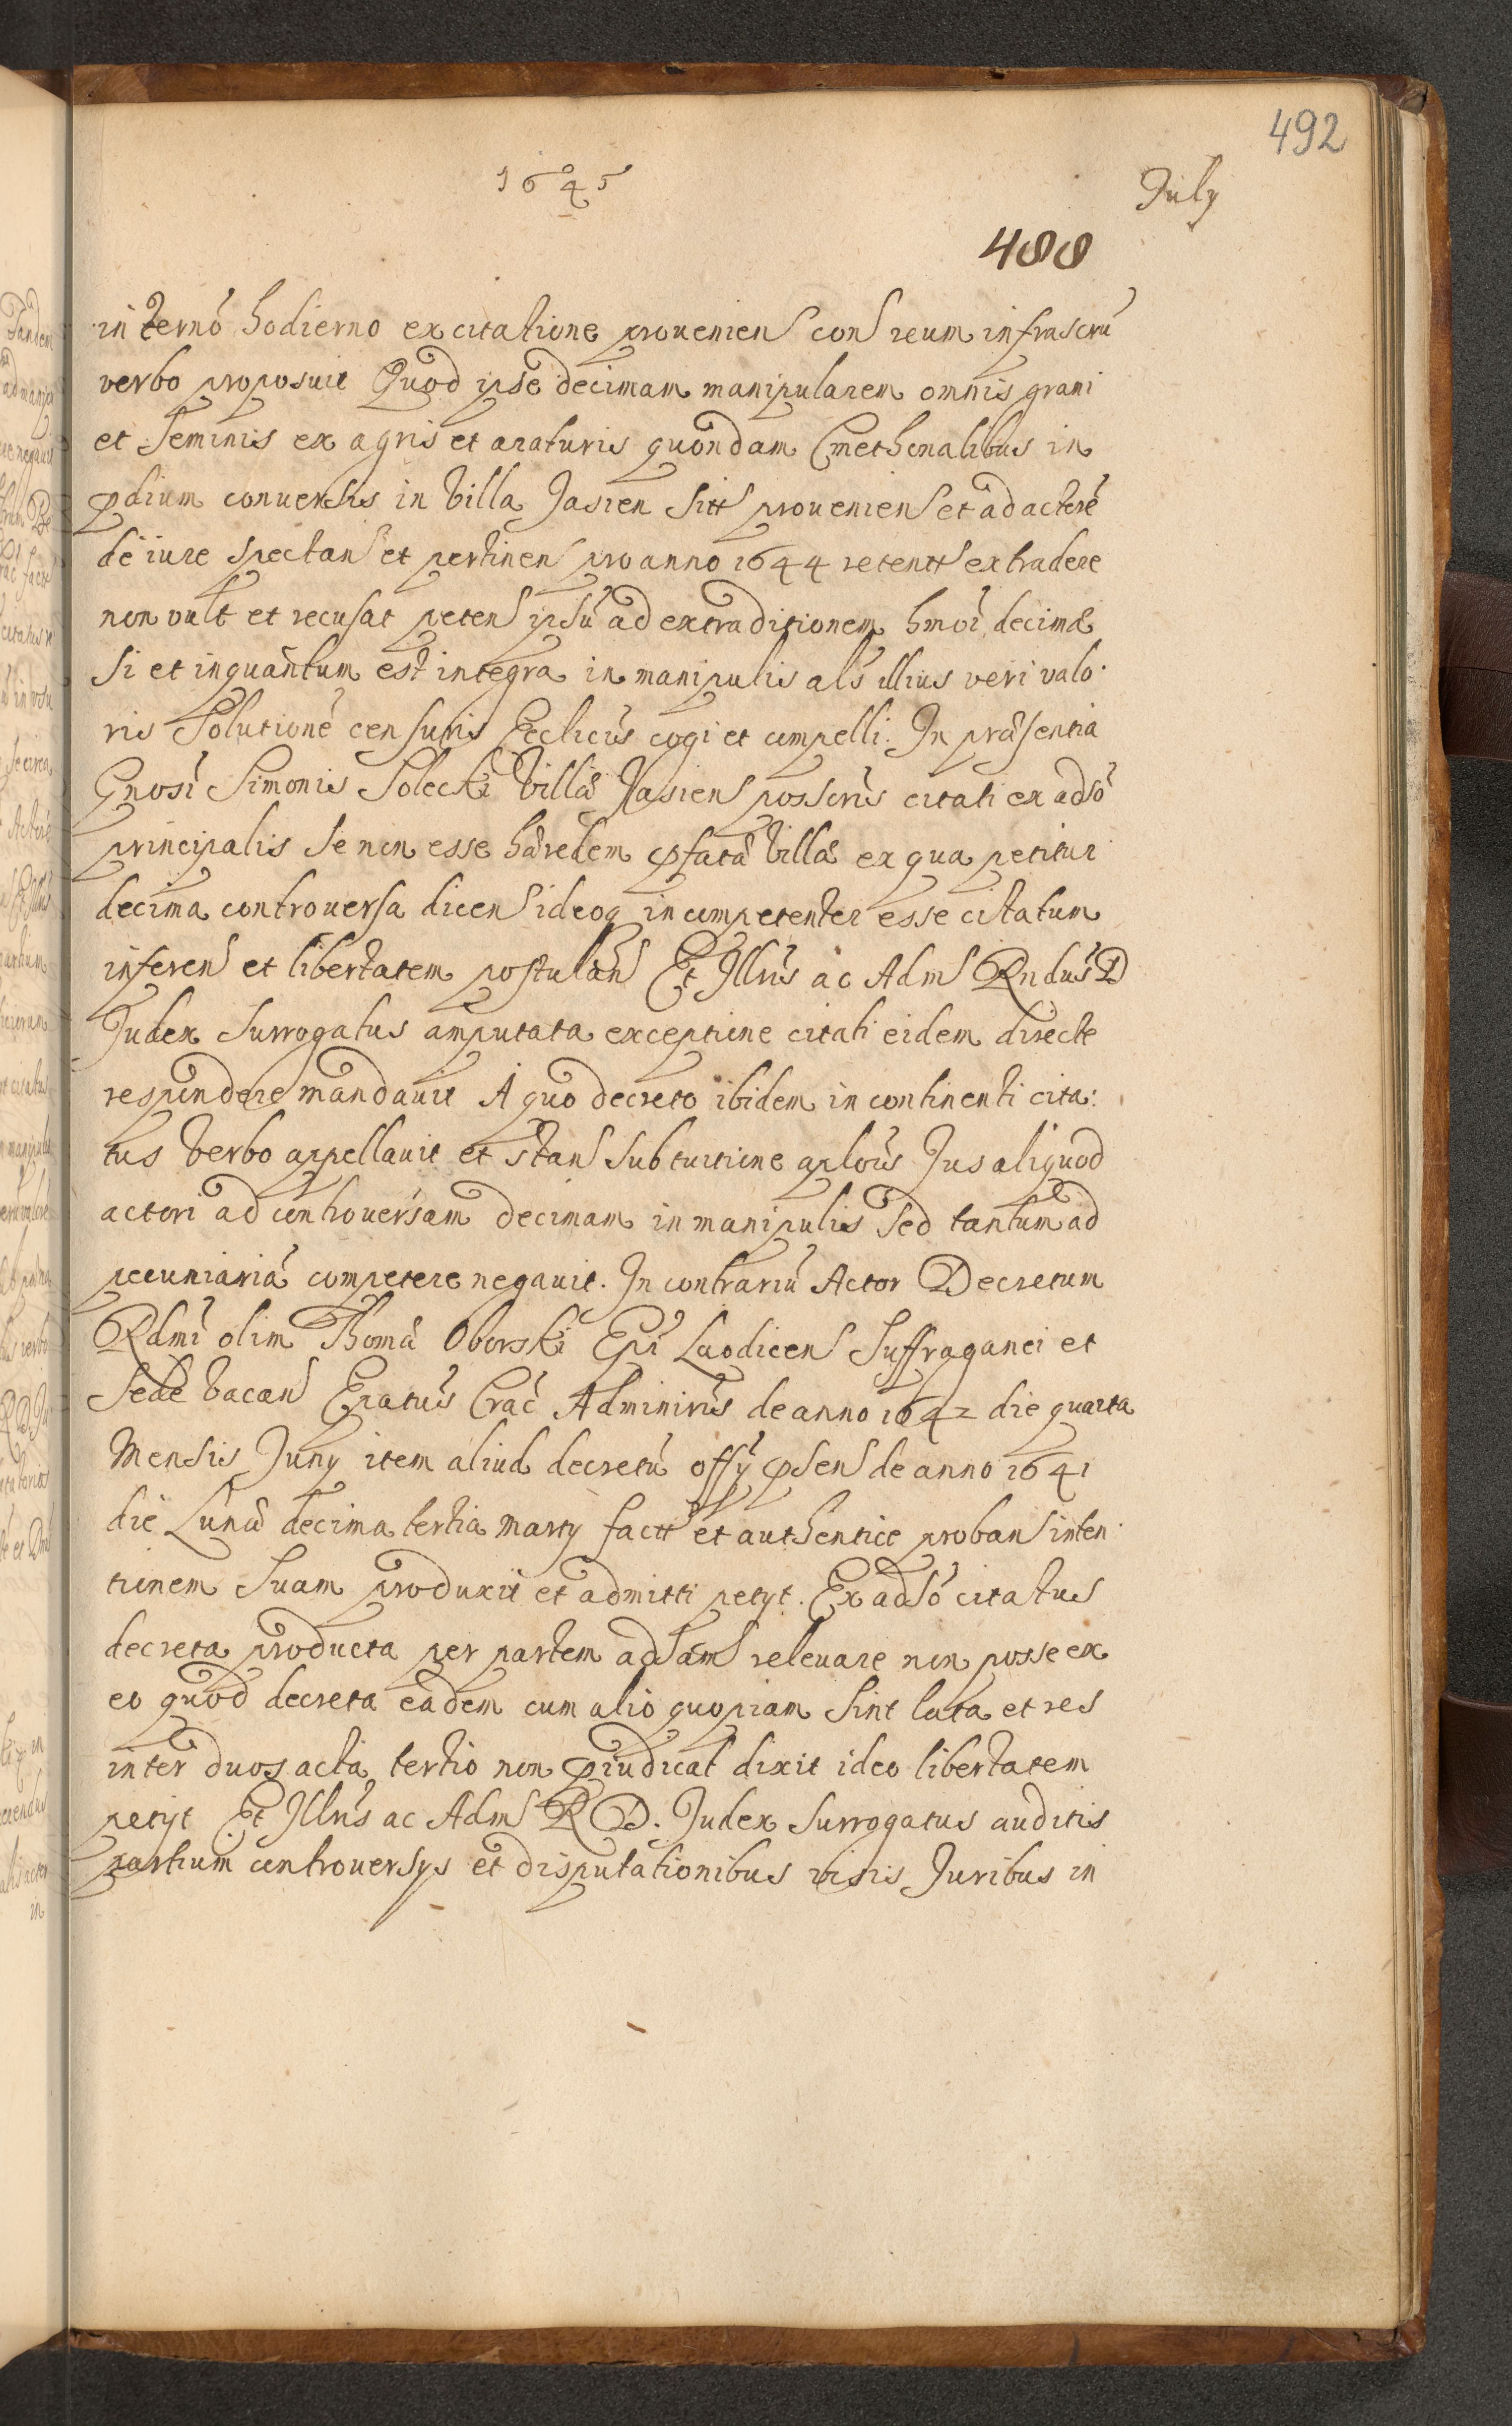 492
1645
July
488
in ternô hodierno ex citatione prouenien con reum infrascrũ
verbo proposuit Quod ipse decimam manipularem omnis grani
et Seminis ex agris et araturis quondam Cmethonalibus in
pdium conuersis in Villa Jasien Sitt prouenien et ad actorẽ
de iure spectan et pertinen pro anno 1644 retentt extradere
non vult et recusat peten ipsũ ad extraditionem hmoi decimæ
Si et inquantum est integra in manipulis als illius veri valo
ris Solutionẽ censuris Ecclicis cogi et compelli. In præsentia
Gnosi Simonis Solecki Villæ Jasien possoris citati ex adsô
principalis Se non esse hæredem pfatæ Villæ ex qua petitur
decima controuersa dicen ideoq incompetenter esse citatum
inferen et libertatem postulan Et Illris ac Adm Rndus D
Judex Surrogatus amputata exceptione citati eidem directe
respondere mandauit A quo decreto ibidem in continenti cita:
tus Verbo appellauit et stan Sub tuitione aplois Jus aliquod
actori ad controuersam decimam in manipulis Sed tantum ad
pecuniariã competere negauit. In contrariũ Actor Decretum
Rdmi olim Thomæ Oborski Epi Laodicen Suffraganei et
Sede Vacan Epatus Crac Adminiris de anno 1642 die quarta
Mensis Juny item aliud decretũ offy psen de anno 1641
die Lunæ decima tertia Marty factt et authentice proban inten
tionem Suam produxit et admitti petyt. Ex adsô citatus
decreta producta per partem adsam releuare non posse ex
eo quod decreta eadem cum alio quopiam Sint lata et res
inter duos acta tertio non piudicat dixit ideo libertatem
petyt Et Illris ac Adm R D. Judex Surrogatus auditis
partium controuersys et disputationibus visis Juribus in